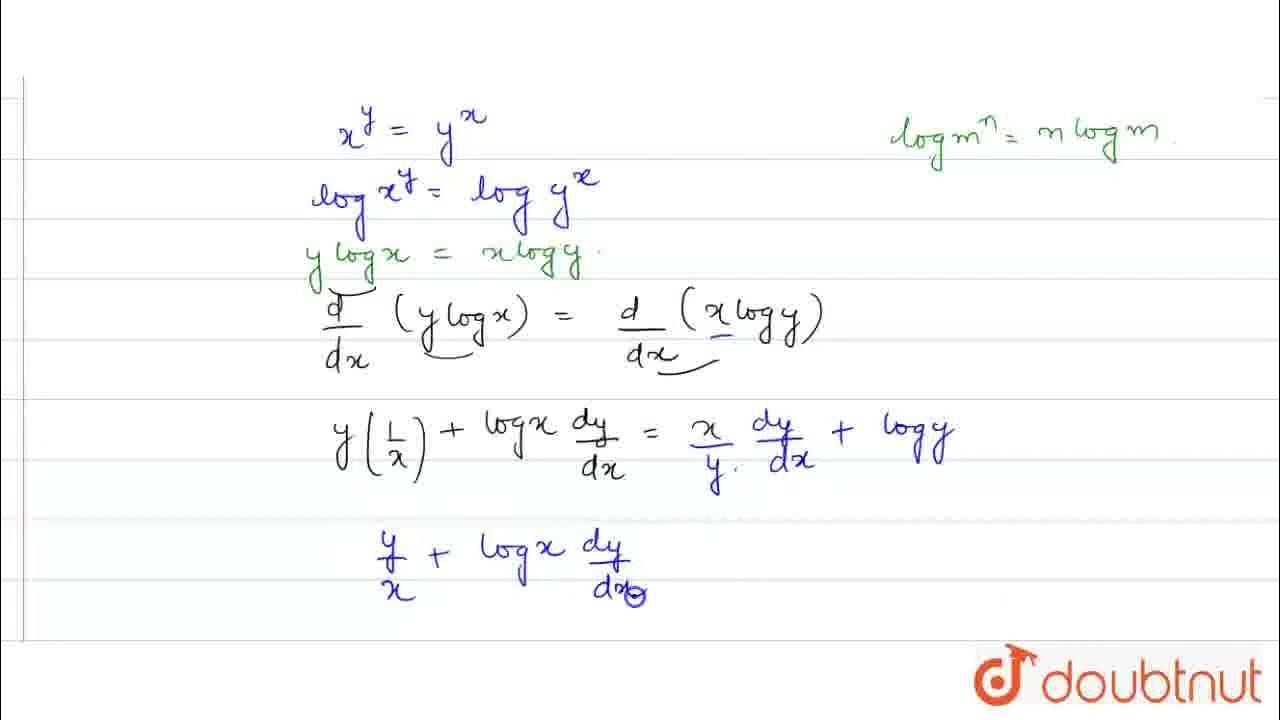 x^y = y^x
log m^n = n log m.
log x^y = log y^x
y log x = x log y.
d/dx (y log x) = d/dx (x log y)
y(1/x) + log x dy/dx = x/y. dy/dx + log y
y/x + log x dy/dx
doubtnut